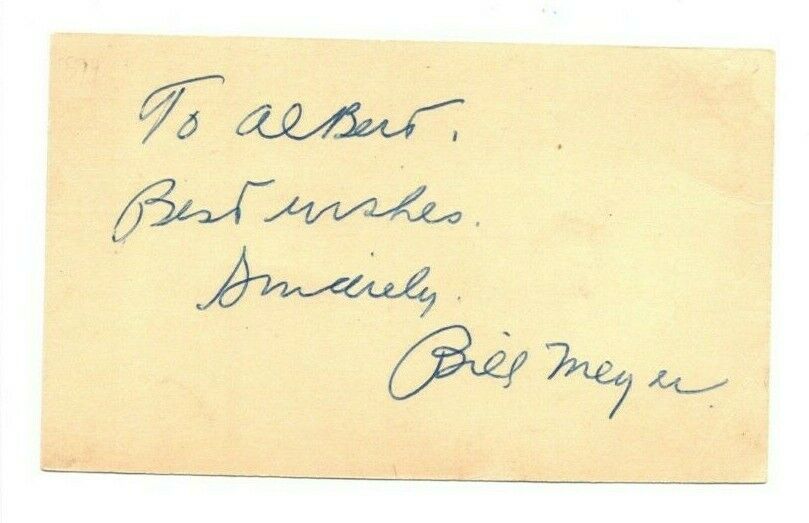 To Albert.
Best wishes.
Sincerely.
Bill Meyer.